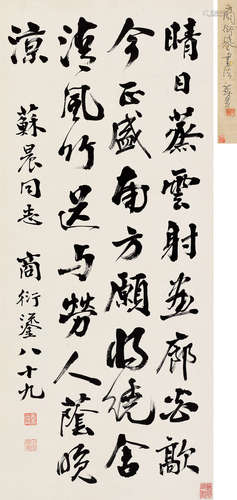 晴日蒸雲射畫廊炎歊
今正盛南方願將繞舍
清風竹送與勞人蔭晚
涼
蘇晨同志 商衍鎏八十九
商衍鎏書法